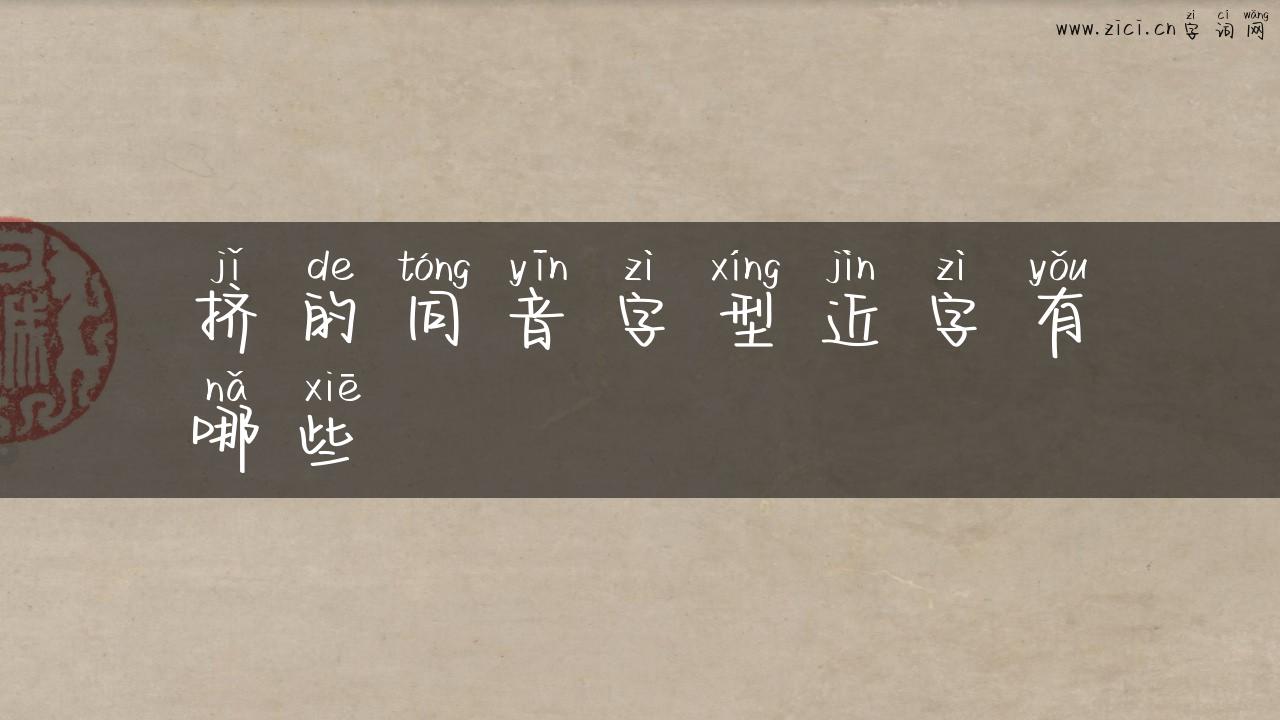 www.zici.cn 字词网
zì cí wǎng
jǐ de tóng yīn zì xíng jìn zì yǒu
挤的同音字型近字有
nǎ xiē
哪些